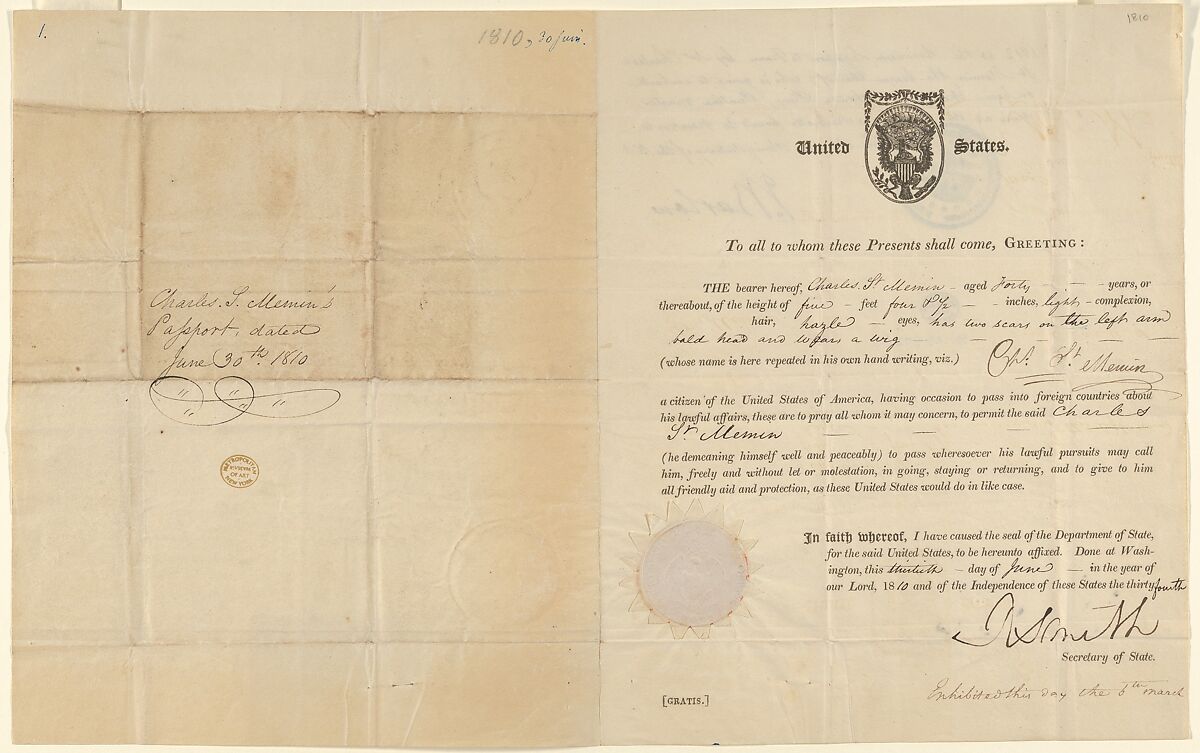 1.
1810, 30 juin.
Charles S. Memin's
Passport, dated
June 30th. 1810
METROPOLITAN
MUSEUM
OF ART
NEW YORK
1810
United States.
To all to whom these Presents shall come, GREETING:
THE bearer hereof, Charles St Memin – aged Forty – – years, or
thereabout, of the height of five – feet four & ½ – – inches, light – complexion,
hair, hazle – eyes, has two scars on the left arm
bald head and wears a wig – – – – –
(whose name is here repeated in his own hand writing, viz.) Chs. St Memin
a citizen of the United States of America, having occasion to pass into foreign countries about
his lawful affairs, these are to pray all whom it may concern, to permit the said Charles
St Memin – – – –
(he demeaning himself well and peaceably) to pass wheresoever his lawful pursuits may call
him, freely and without let or molestation, in going, staying or returning, and to give to him
all friendly aid and protection, as these United States would do in like case.
In faith whereof, I have caused the seal of the Department of State,
for the said United States, to be hereunto affixed. Done at Wash-
ington, this thirtieth – day of June – in the year of
our Lord, 1810 and of the Independence of these States the thirty fourth
R Smith
Secretary of State.
[GRATIS.]
Exhibited this day the 6th march